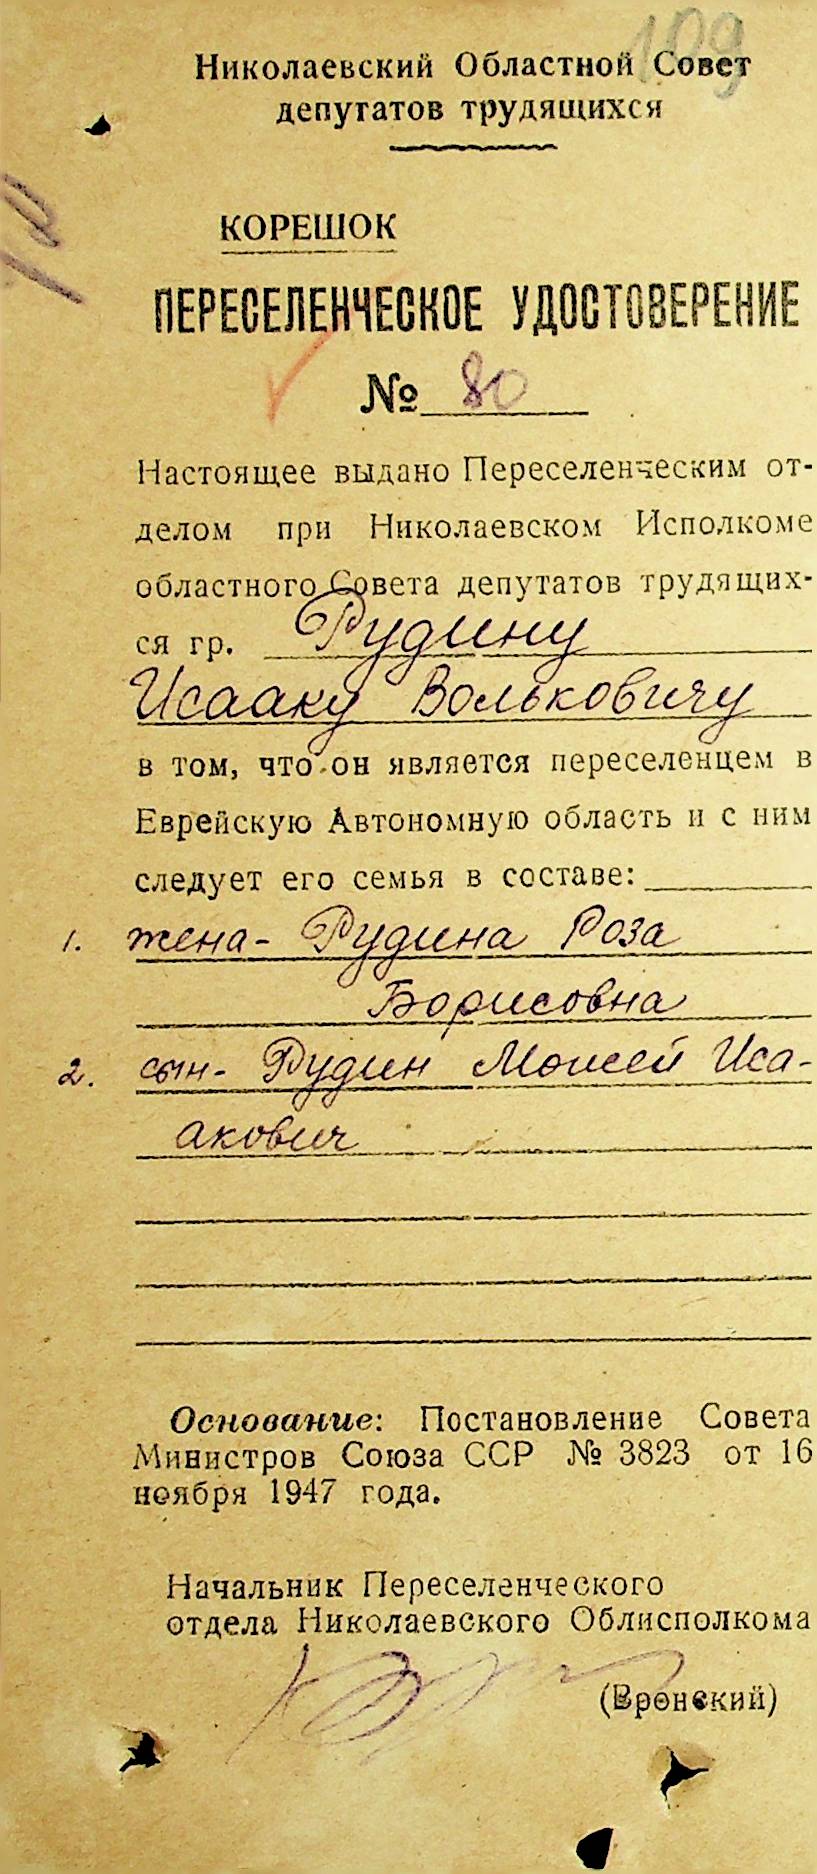 109
Николаевский Областной Совет
депутатов трудящихся
КОРЕШОК
ПЕРЕСЕЛЕНЧЕСКОЕ УДОСТОВЕРЕНИЕ
№ 80
Настоящее выдано Переселенческим от-
делом при Николаевском Исполкоме
областного Совета депутатов трудящих-
ся гр. Рудину
Исааку Вольковичу
в том, что он является переселенцем в
Еврейскую Автономную область и с ним
следует его семья в составе:
1. жена- Рудина Роза
Борисовна
2. сын- Рудин Моисей Иса-
акович
Основание: Постановление Совета
Министров Союза ССР № 3823 от 16
ноября 1947 года.
Начальник Переселенческого
отдела Николаевского Облисполкома
(Вронский)